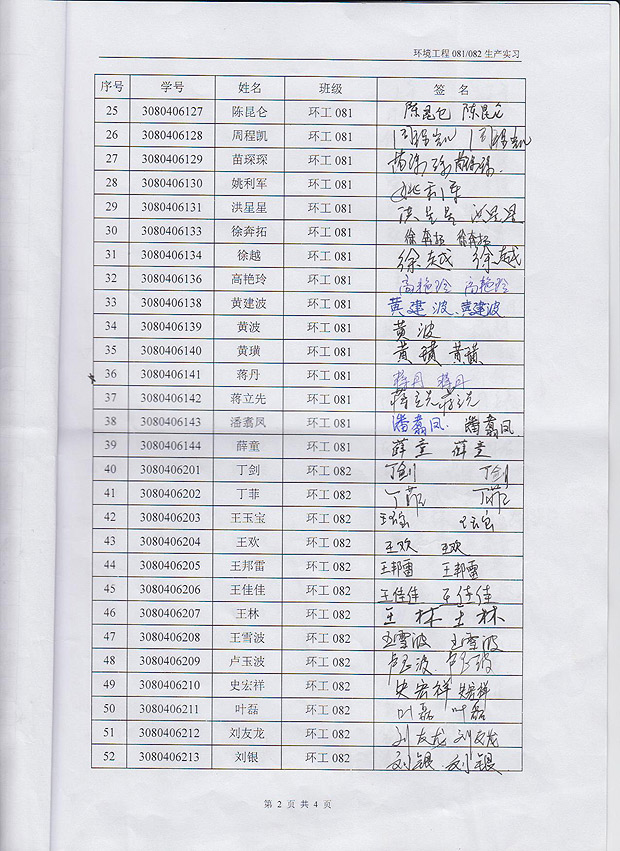 环境工程 081/082 生产实习
序号 学号 姓名 班级 签 名
25 3080406127 陈昆仑 环工 081 陈昆仑 陈昆仑
26 3080406128 周程凯 环工 081 周程凯 周程凯
27 3080406129 苗琛琛 环工 081 苗琛琛 苗琛琛
28 3080406130 姚利军 环工 081 姚利军
29 3080406131 洪星星 环工 081 洪星星 洪星星
30 3080406133 徐奔拓 环工 081 徐奔拓 徐奔拓
31 3080406134 徐越 环工 081 徐越 徐越
32 3080406136 高艳玲 环工 081 高艳玲 高艳玲
33 3080406138 黄建波 环工 081 黄建波 黄建波
34 3080406139 黄波 环工 081 黄波
35 3080406140 黄璜 环工 081 黄璜 黄璜
36 3080406141 蒋丹 环工 081 蒋丹 蒋丹
37 3080406142 蒋立先 环工 081 蒋立先 蒋立先
38 3080406143 潘翥凤 环工 081 潘翥凤 潘翥凤
39 3080406144 薛童 环工 081 薛童 薛童
40 3080406201 丁剑 环工 082 丁剑 丁剑
41 3080406202 丁菲 环工 082 丁菲 丁菲
42 3080406203 王玉宝 环工 082 王玉宝 王玉宝
43 3080406204 王欢 环工 082 王欢 王欢
44 3080406205 王邦雷 环工 082 王邦雷 王邦雷
45 3080406206 王佳佳 环工 082 王佳佳 王佳佳
46 3080406207 王林 环工 082 王林 王林
47 3080406208 王雪波 环工 082 王雪波 王雪波
48 3080406209 卢玉波 环工 082 卢玉波 卢玉波
49 3080406210 史宏祥 环工 082 史宏祥 史宏祥
50 3080406211 叶磊 环工 082 叶磊 叶磊
51 3080406212 刘友龙 环工 082 刘友龙 刘友龙
52 3080406213 刘银 环工 082 刘银 刘银
第 2 页 共 4 页